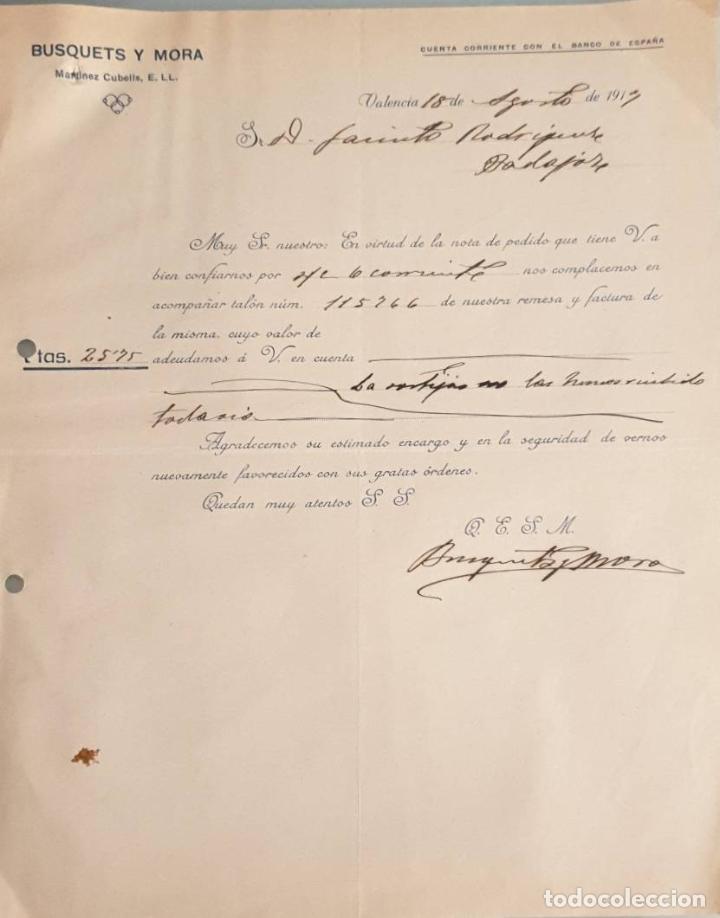 BUSQUETS Y MORA
Martinez Cubells, E. LL.
CUENTA CORRIENTE CON EL BANCO DE ESPAÑA
Valencia 18 de Agosto de 1917
Sr. D. Jacinto Rodriguez
Badajoz
Muy Sr. nuestro: En virtud de la nota de pedido que tiene V. a
bien confiarnos por s/c 6 corriente nos complacemos en
acompañar talón núm. 115766 de nuestra remesa y factura de
la misma, cuyo valor de
Ptas. 25'75 adeudamos á V. en cuenta
La sortijas no las hemos recibido
todavia
Agradecemos su estimado encargo y en la seguridad de vernos
nuevamente favorecidos con sus gratas órdenes.
Quedan muy atentos S. S.
Q. E. S. M.
Busquets y Mora
todocoleccion